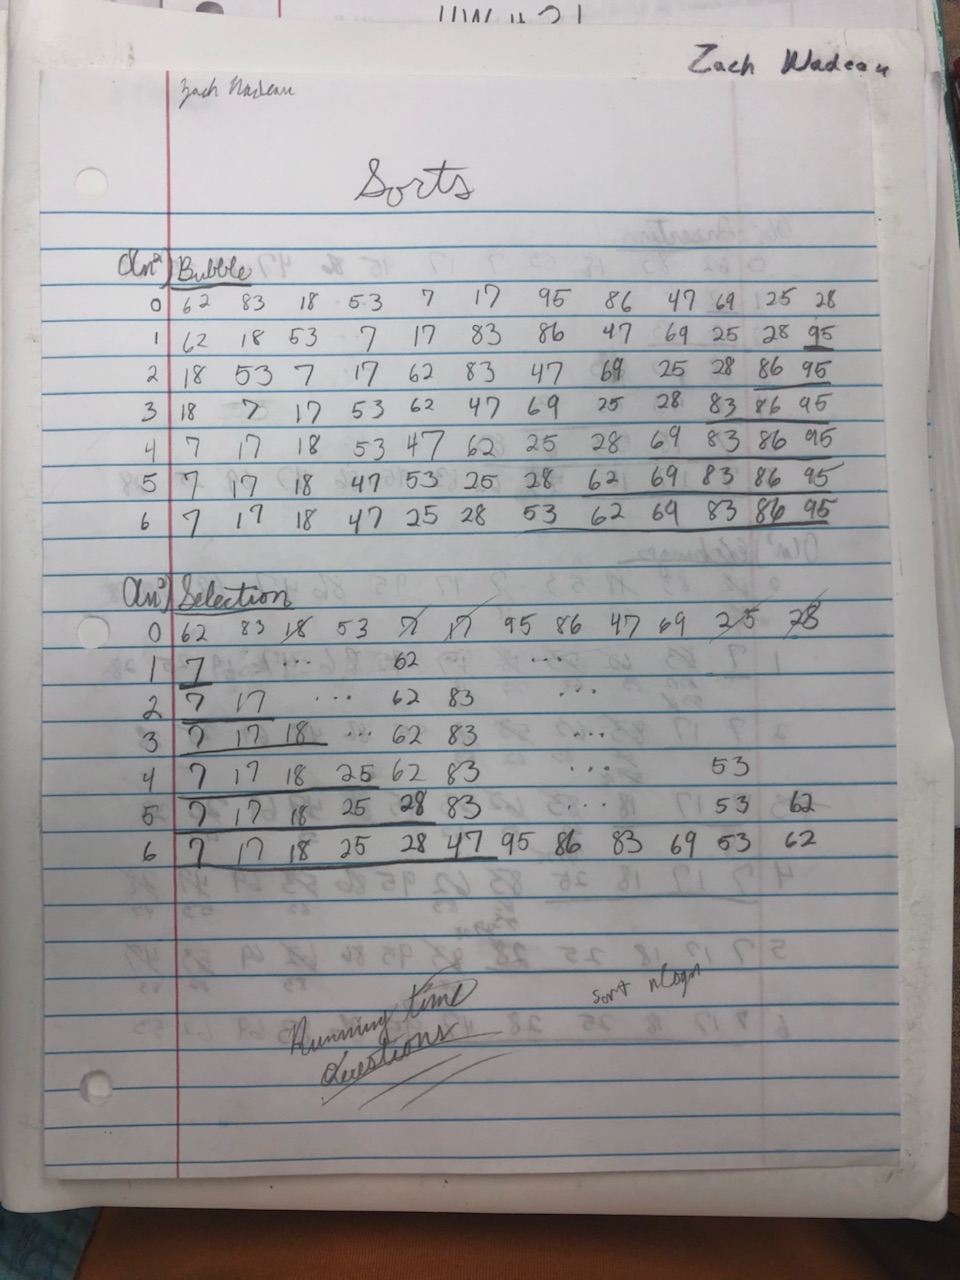 Zach Nadeau
Zach Nadeau
Sorts
O(n²) Bubble
0 62 83 18 53 7 17 95 86 47 69 25 28
1 62 18 53 7 17 83 86 47 69 25 28 95
2 18 53 7 17 62 83 47 69 25 28 86 95
3 18 7 17 53 62 47 69 25 28 83 86 95
4 7 17 18 53 47 62 25 28 69 83 86 95
5 7 17 18 47 53 25 28 62 69 83 86 95
6 7 17 18 47 25 28 53 62 69 83 86 95
O(n²) Selection
0 62 83 18 53 7 17 95 86 47 69 25 28
1 7 ... 62 ...
2 7 17 ... 62 83 ...
3 7 17 18 ... 62 83 ...
4 7 17 18 25 62 83 ... 53
5 7 17 18 25 28 83 ... 53 62
6 7 17 18 25 28 47 95 86 83 69 53 62
sort nlogn
Running time
Questions